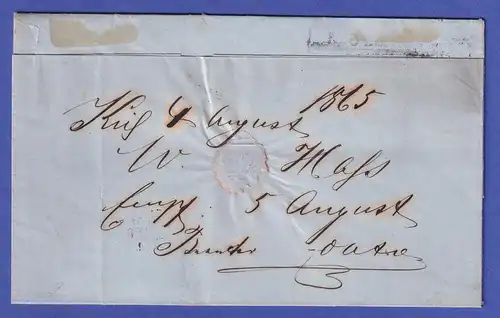 Kiel 4 August 1865
W. Mass
Empf. 5 August
Beantw. dato